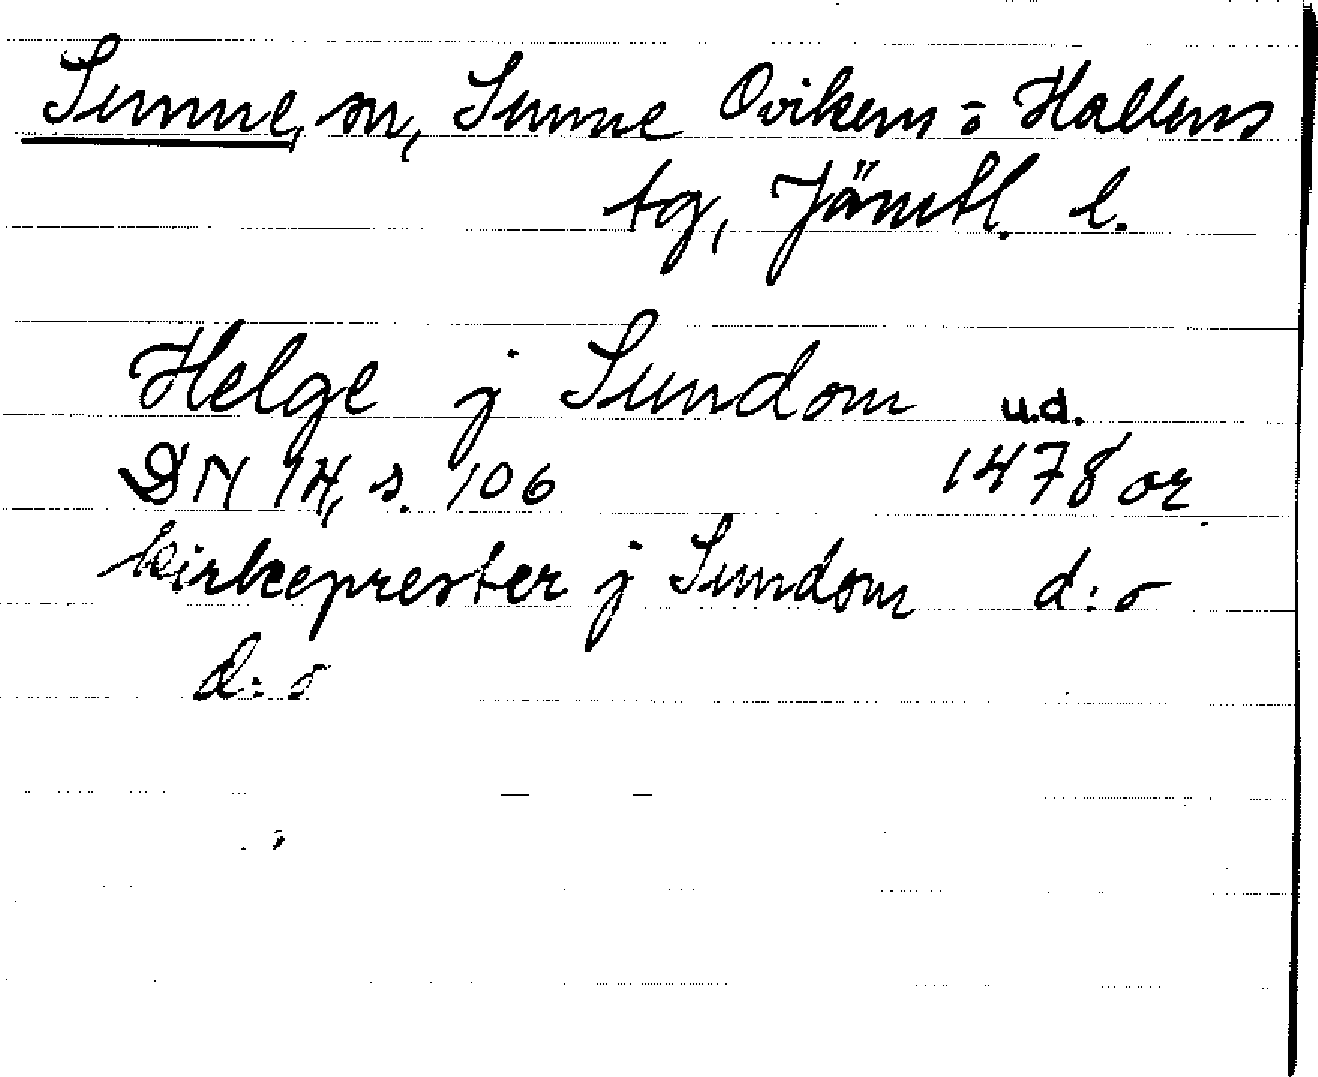 Sunne, sn, Sunne Ovikens o Hallens
tg, Jämtl. l.
Helge j Sundom u.d.
DN 14, s. 106 1478 or
kirkeprester j Sundom d:o
d:o